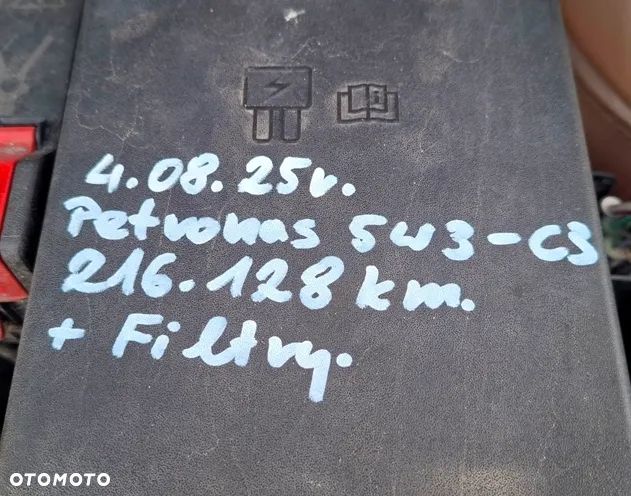 4.08.25r.
Petronas 5W3-C3
216.128 km.
+ Filtry.
OTOMOTO